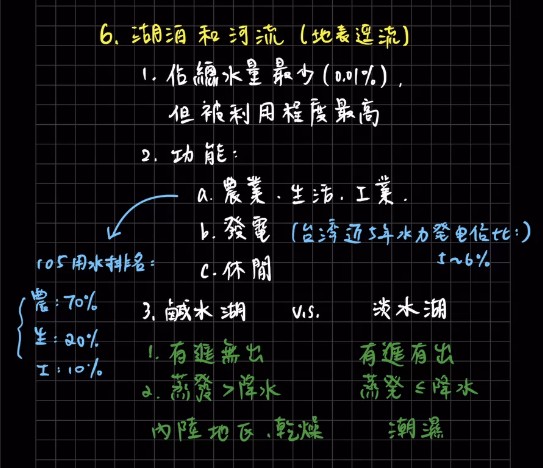 6. 湖泊和河流 (地表逕流)
1. 佔總水量最少 (0.01%),
但被利用程度最高
2. 功能:
a. 農業、生活、工業.
b. 發電 (台灣近5年水力發电佔比:)
5~6%
c. 休閒
105用水排名:
農: 70%
生: 20%
工: 10%
3. 鹹水湖 v.s. 淡水湖
1. 有進無出 有進有出
2. 蒸發>降水 蒸発≤降水
內陸地區、乾燥 潮濕